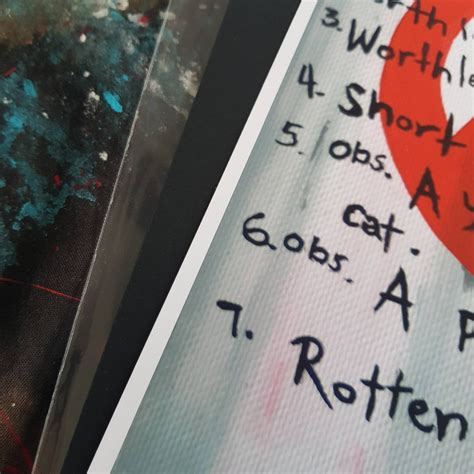 3. Worthle
4. Short
5. obs. A y
cat.
6. obs. A p
7. Rotten